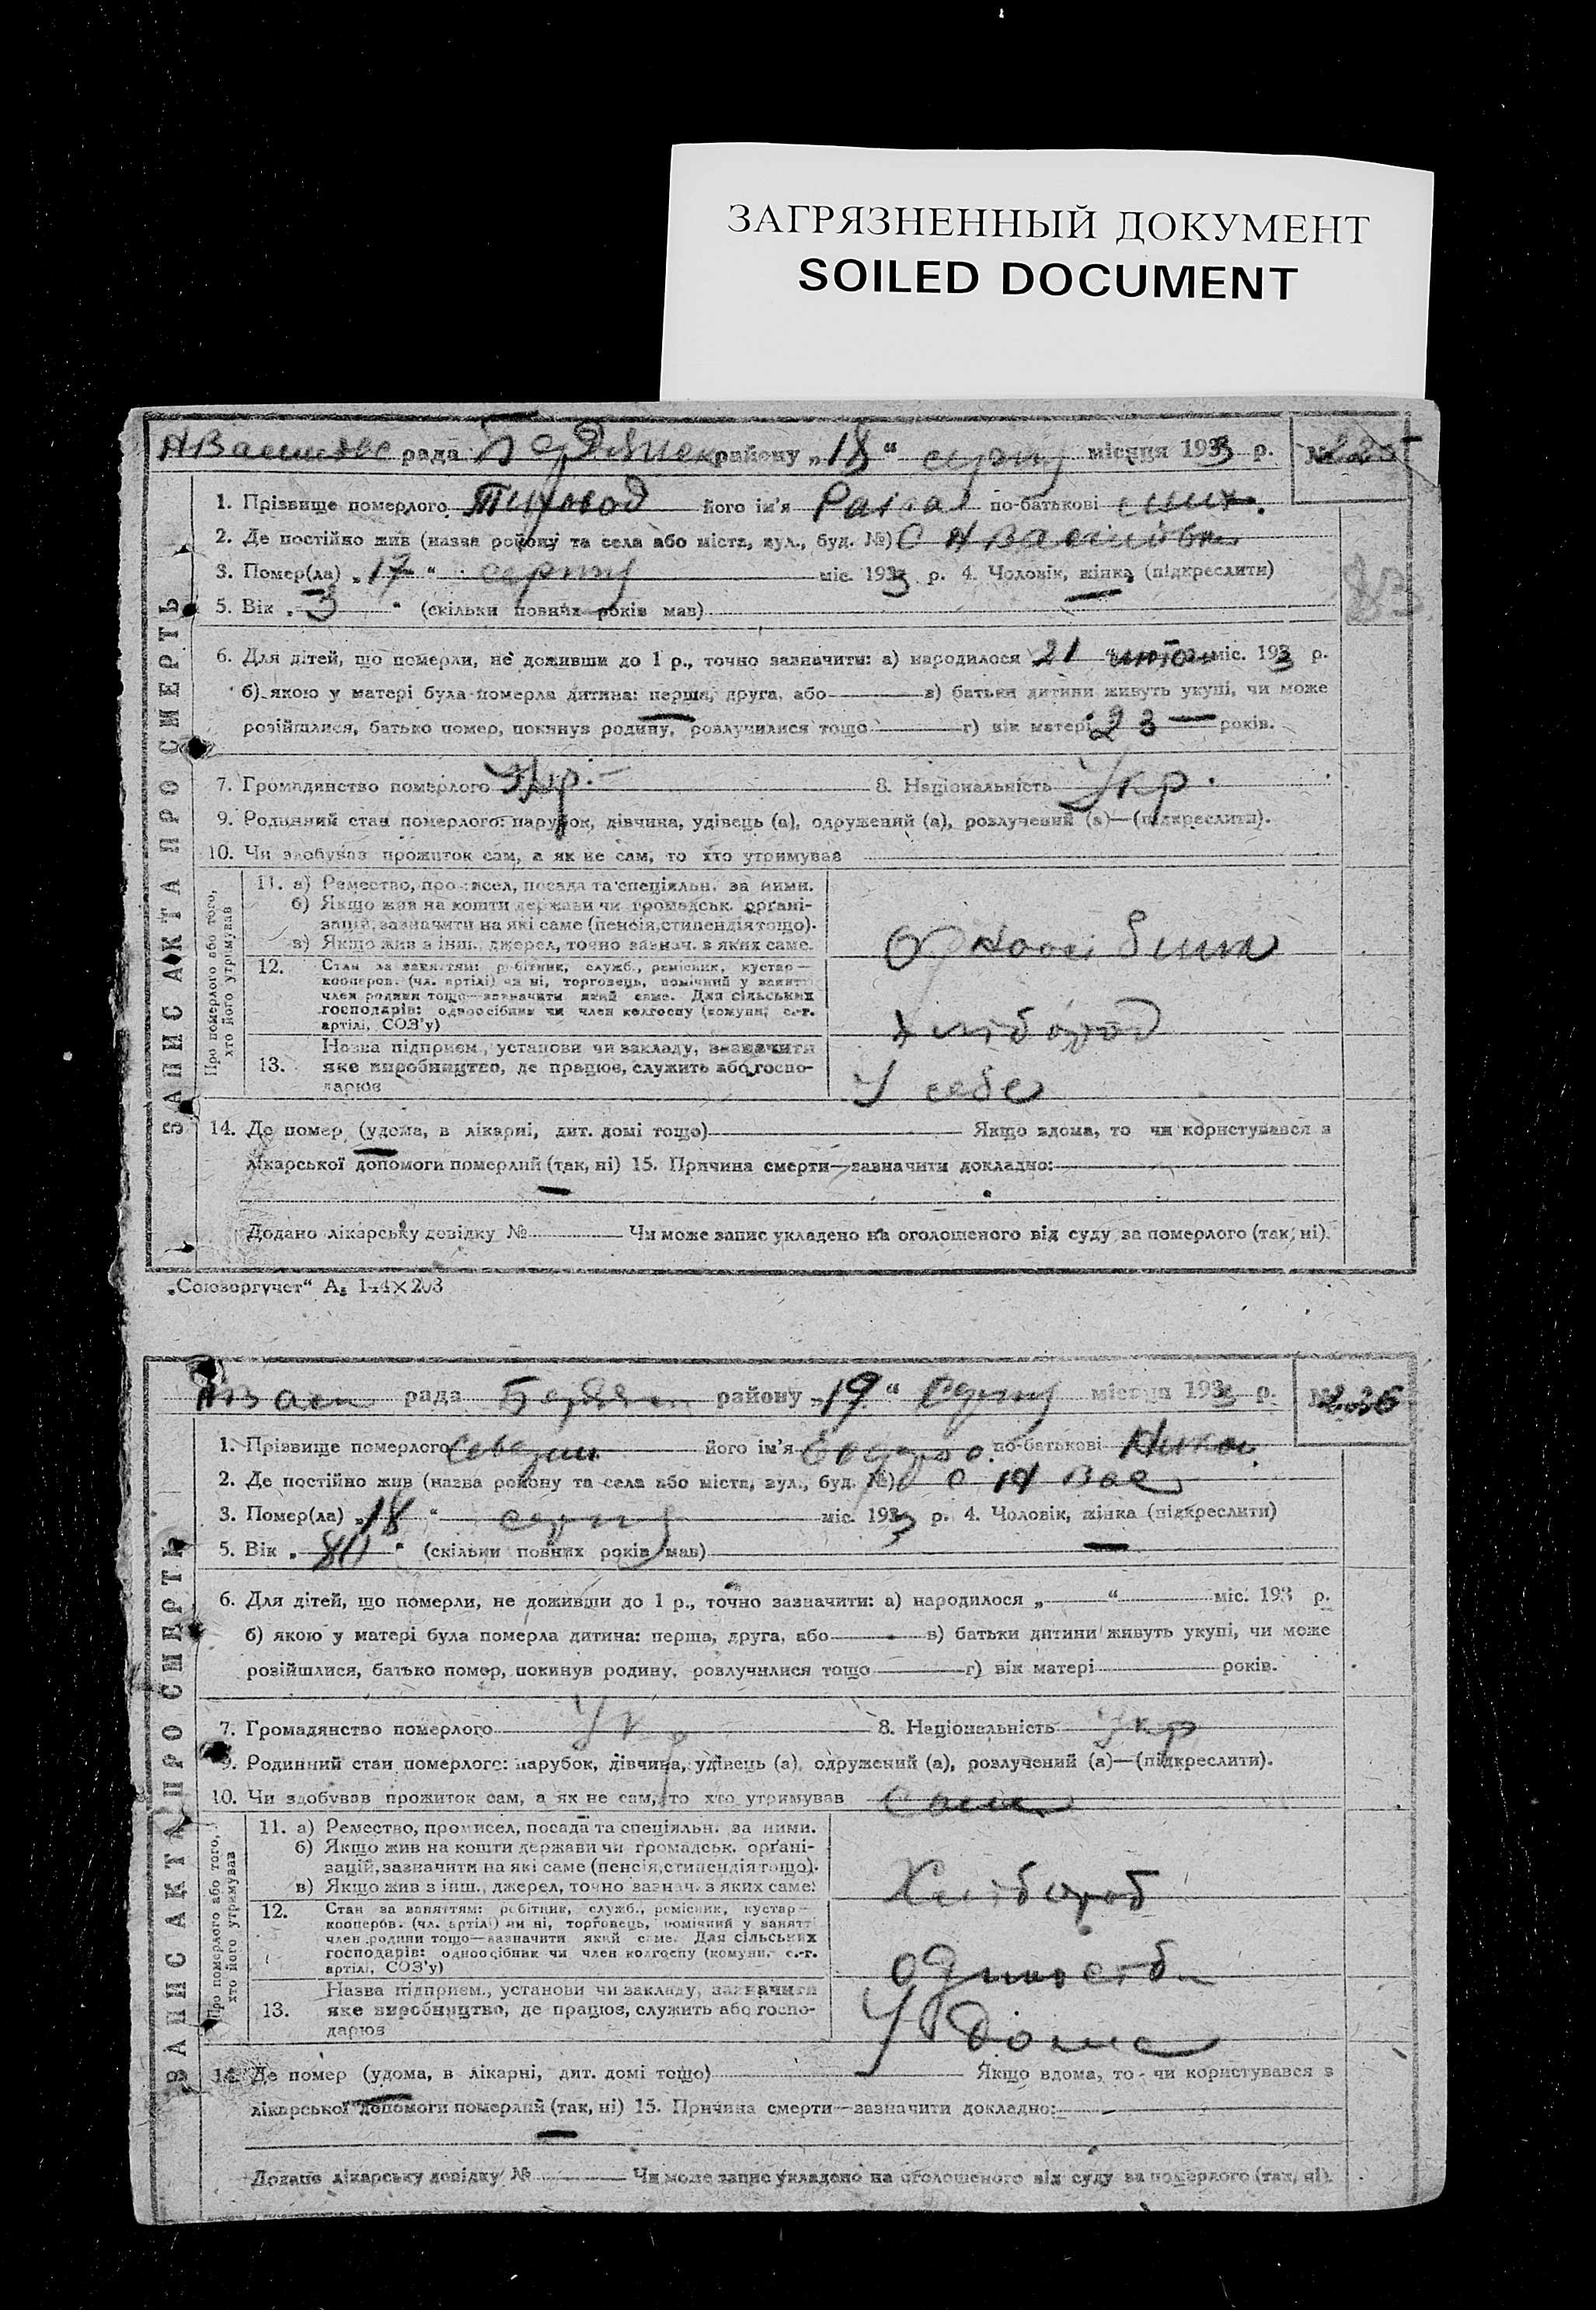 ЗАГРЯЗНЕННЫЙ ДОКУМЕНТ
SOILED DOCUMENT
рада району „18“ серпня місяця 1933 р. №
1. Прізвище померлого його ім'я по-батькові
2. Де постійно жив (назва району та села або міста, вул., буд. №) С
3. Помер(ла) „17“ серпня міс. 1933 р. 4. Чоловік, жінка (підкреслити)
5. Вік „3“ (скільки повних років мав)
6. Для дітей, що померли, не доживши до 1 р., точно зазначити: а) народилося 21 “ міс. 1933 р.
б) якою у матері була померла дитина: перша, друга, або в) батьки дитини живуть укупі, чи може
розійшлися, батько помер, покинув родину, розлучилися тощо г) вік матері 23 років.
7. Громадянство померлого Укр. 8. Національність Укр.
9. Родинний стан померлого: парубок, дівчина, удівець (а), одружений (а), розлучений (а)—(підкреслити).
10. Чи здобував прожиток сам, а як не сам, то хто утримував
ЗАПИС АКТА ПРО СМЕРТЬ
Про померлого або того, хто його утримував
11. а) Ремество, промисел, посада та спеціяльн. за ними.
б) Якщо жив на кошти держави чи громадськ. організацій, зазначити на які саме (пенсія, стипендія тощо).
в) Якщо жив з інш. джерел, точно зазнач. з яких саме.
12. Стан за заняттям: робітник, служб., ремісник, кустар—
кооперов. (чл. артілі) чи ні, торговець, помічний у занятті
член родини тощо—зазначити який саме. Для сільських
господарів: одноосібник чи член колгоспу (комуни, с.-г.
артілі, СОЗ'у)
Назва підприєм., установи чи закладу, зазначити
13. яке виробництво, де працює, служить або госпо-
дарює
У себе
14. Де помер (удома, в лікарні, дит. домі тощо) Якщо вдома, то чи користувався з
лікарської допомоги померлий (так, ні) 15. Причина смерти—зазначити докладно:
Додано лікарську довідку № Чи може запис укладено на оголошеного від суду за померлого (так, ні).
„Союзоргучет“ А₅ 144×203
83
рада району „19“ серпня місяця 193 р. №236
1. Прізвище померлого його ім'я по-батькові
2. Де постійно жив (назва району та села або міста, вул., буд. №) с
3. Помер(ла) „18“ серпня міс. 1933 р. 4. Чоловік, жінка (підкреслити)
5. Вік „80“ (скільки повних років мав)
6. Для дітей, що померли, не доживши до 1 р., точно зазначити: а) народилося „ “ міс. 193 р.
б) якою у матері була померла дитина: перша, друга, або в) батьки дитини живуть укупі, чи може
розійшлися, батько помер, покинув родину, розлучилися тощо г) вік матері років.
7. Громадянство померлого Укр 8. Національність Укр
9. Родинний стан померлого: парубок, дівчина, удівець (а), одружений (а), розлучений (а)—(підкреслити).
10. Чи здобував прожиток сам, а як не сам, то хто утримував
ЗАПИС АКТА ПРО СМЕРТЬ
Про померлого або того, хто його утримував
11. а) Ремество, промисел, посада та спеціяльн. за ними.
б) Якщо жив на кошти держави чи громадськ. органі-
зацій, зазначити на які саме (пенсія, стипендія тощо).
в) Якщо жив з інш., джерел, точно зазнач. з яких саме:
Хлібороб
12. Стан за заняттям: робітник, служб., ремісник, кустар—
кооперов. (чл. артілі) чи ні, торговець, помічний у занятті
член родини тощо—зазначити який саме. Для сільських
господарів: одноосібник чи член колгоспу (комуни, с.-г.
артілі, СОЗ'у)
Назва підприєм., установи чи закладу, зазначити
13. яке виробництво, де працює, служить або госпо-
дарює
14. Де помер (удома, в лікарні, дит. домі тощо) Якщо вдома, то чи користувався з
лікарської допомоги померлий (так, ні) 15. Причина смерти—зазначити докладно:
Додано лікарську довідку № Чи може запис укладено на оголошеного від суду за померлого (так, ні).